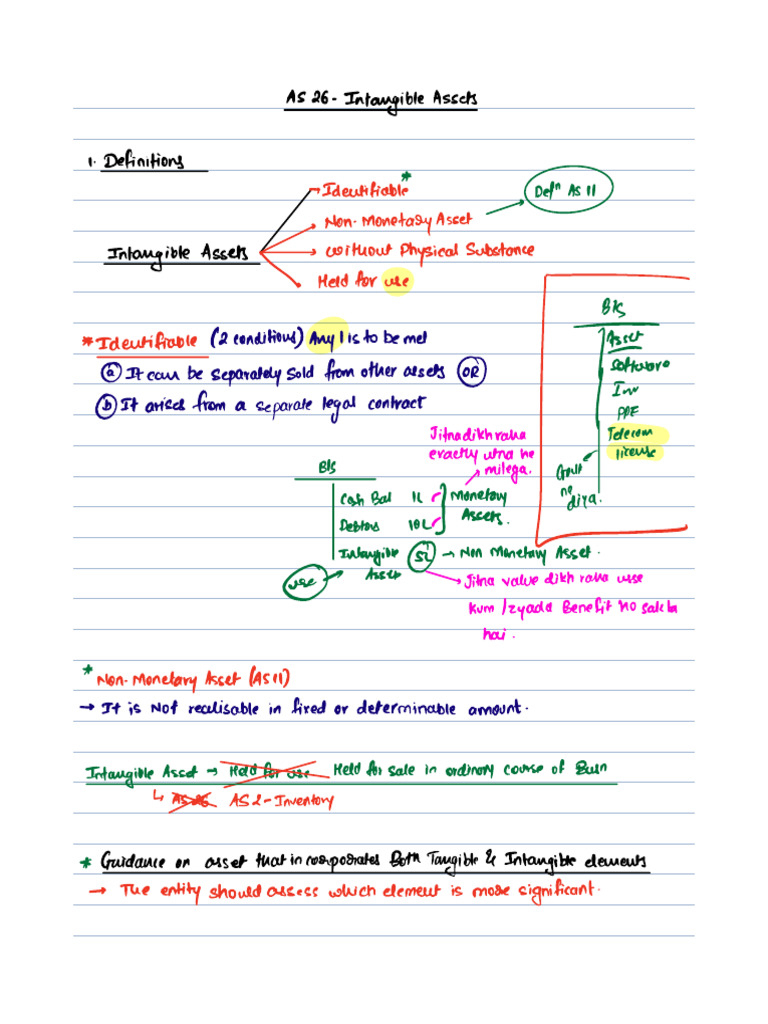 AS 26 - Intangible Assets
1. Definitions
Intangible Assets
Identifiable *
Non-Monetary Asset → Defⁿ AS 11
without Physical Substance
Held for use
* Identifiable (2 conditions) Any 1 is to be met
(a) It can be separately sold from other assets (OR)
(b) It arises from a separate legal contract
B/S
Asset
Software
Inv
PPE
Telecom
license
Govt
ne
diya.
Jitna dikh raha
exactly utna he
milega.
B/S
Cash Bal 1L
Debtors 10L
Monetary
Assets.
Intangible
Asset
5L → Non Monetary Asset.
use
→ Jitna value dikh raha usse
kum / zyada Benefit ho sakta
hai.
*
Non-Monetary Asset (AS 11)
→ It is Not realisable in fixed or determinable amount.
Intangible Asset → Held for use Held for sale in ordinary course of Busn
↳ AS 26 AS 2 - Inventory
* Guidance on asset that incorporates Both Tangible & Intangible elements
→ The entity should assess which element is more significant.